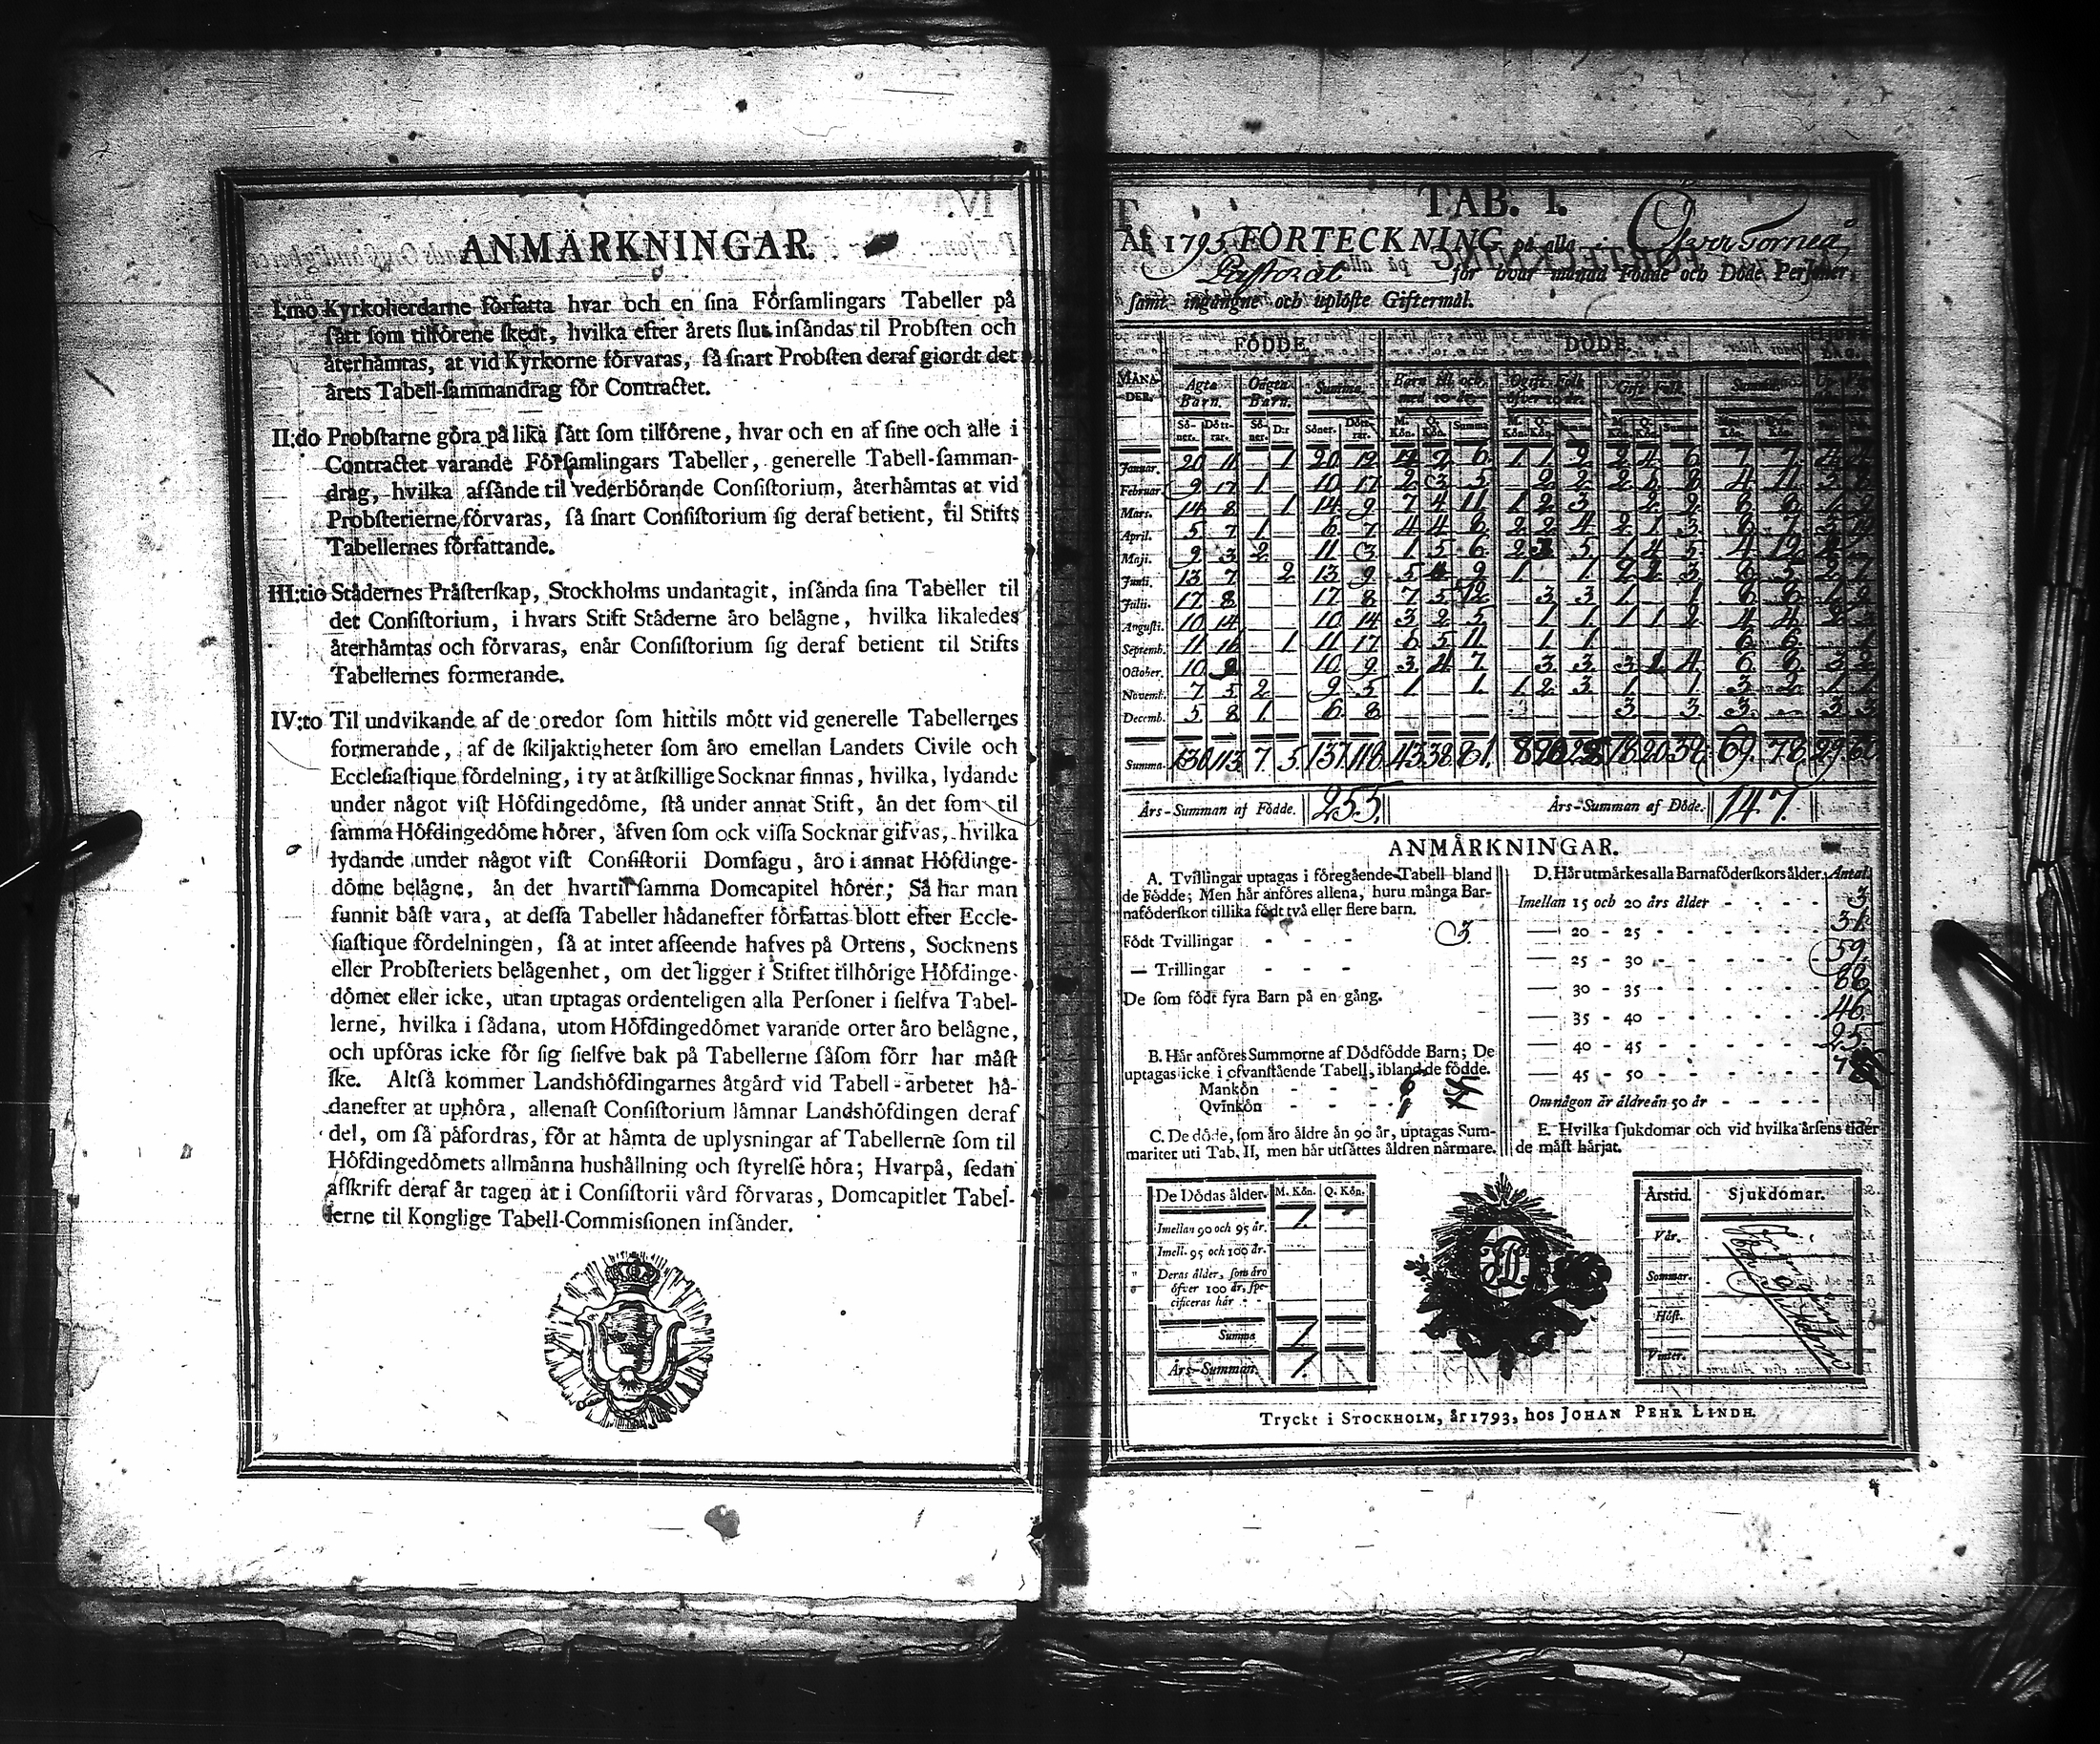 ANMÄRKNINGAR.
I:mo Kyrkoherdarne författa hvar och en sina Församlingars Tabeller på
sått som tilförene skedt, hvilka efter årets slut insåndas til Probsten och
återhåmtas, at vid Kyrkorne förvaras, så snart Probsten deraf giordt det
årets Tabell-sammandrag för Contractet.
II:do Probstarne göra på lika sått som tilförene, hvar och en af sine och alle i
Contractet varande Församlingars Tabeller, generelle Tabell-samman-
drag, hvilka afsånde til vederbörande Consistorium, återhåmtas at vid
Probsterierne förvaras, så snart Consistorium sig deraf betient, til Stifts
Tabellernes författande.
III:tio Städernes Pråsterskap, Stockholms undantagit, insånda sina Tabeller til
det Consistorium, i hvars Stift Städerne åro belågne, hvilka likaledes
återhåmtas och förvaras, enår Consistorium sig deraf betient til Stifts
Tabellernes formerande.
IV:to Til undvikande af de oredor som hittils mött vid generelle Tabellernes
formerande, af de skiljaktigheter som åro emellan Landets Civile och
Ecclesiastique fördelning, i ty at åtskillige Socknar finnas, hvilka, lydande
under något vist Höfdingedöme, stå under annat Stift, ån det som til
samma Höfdingedöme hörer, åfven som ock vissa Socknar gifvas, hvilka
lydande under något vist Consistorii Domsagu, åro i annat Höfdinge-
döme belågne, ån det hvartil samma Domcapitel hörer; Så har man
funnit båst vara, at dessa Tabeller hådanefter författas blott efter Eccle-
siastique fördelningen, så at intet afseende hafves på Ortens, Socknens
eller Probsteriets belågenhet, om det ligger i Stiftet tilhörige Höfdinge-
dömet eller icke, utan uptagas ordenteligen alla Personer i sielfva Tabel-
lerne, hvilka i sådana, utom Höfdingedömet varande orter åro belågne,
och upföras icke för sig sielfve bak på Tabellerne såsom förr har måst
ske. Altså kommer Landshöfdingarnes åtgård vid Tabell-arbetet hå-
danefter at uphöra, allenast Consistorium låmnar Landshöfdingen deraf
del, om så påfordras, för at håmta de uplysningar af Tabellerne som til
Höfdingedömets allmånna hushållning och styrelse höra; Hvarpå, sedan
afskrift deraf år tagen at i Consistorii vård förvaras, Domcapitlet Tabel-
lerne til Konglige Tabell-Commissionen insånder.
TAB. I.
ÅR 1795 FÖRTECKNING på alla i Öfver Torneå
Pastorat för hvar månad Födde och Döde Personer,
samt ingångne och uplöste Giftermål.
FÖDDE. DÖDE.
MÅNADER. Ågta Barn. Oågta Barn. Summa. Barn til och med 10 år. Ogift Folk öfver 10 år. Gift Folk. Summa.
Söner. Döttrar. Söner. D:r Söner. Döttrar. M. Kön. Q. Kön. Summa M. Kön. Q. Kön. Summa M. Kön. Q. Kön. Summa
Januar. 20 11 1 20 12
Februar. 9 17 1 10 17 2 3 5 2 2
Mars. 14 8 1 14 9 7 4 11 1 2 3 2 2
April. 5 7 1 6 7 4 4 8 2 2 4 2 1 3
Maji. 9 3 2 11 3 1 5 6
Junii. 13 7 2 13 9
Julii. 17 8 17 8 7 5 12 3 3 1 1
Augusti. 10 14 10 14 3 2 5 1 1 1 1 2 4 4
Septemb. 11 16 1 11 17 6 5 11 1 1
October. 10 9 10 9 3 4 7 3 3
Novemb. 7 5 2 9 5 1 1 1 2 3 1 1 3 2 1 1
Decemb. 5 8 1 6 8 3 3 3 3 3
Summa. 130 113 7 5 137 118 43 38 81 8 20 28 18 20 38 69 78 29
Års-Summan af Födde. 255. Års-Summan af Döde. 147.
ANMÅRKNINGAR.
A. Tvillingar uptagas i föregående Tabell bland
de Födde; Men hår anföres allena, huru många Bar-
naföderskor tillika födt två eller flere barn.
Födt Tvillingar - - - 3.
— Trillingar - - -
De som födt fyra Barn på en gång.
B. Hår anföres Summorne af Dödfödde Barn; De
uptagas icke i ofvanstående Tabell, ibland de födde.
Mankön - - - 6
Qvinkön - - - 1
C. De döde, som åro åldre ån 90 år, uptagas Sum-
mariter uti Tab. II, men hår utsåttes åldren nårmare.
De Dödas ålder. M. Kön. Q. Kön.
Imellan 90 och 95 år. 1.
Imell. 95 och 100 år.
Deras ålder, som åro
öfver 100 år, spe-
cificeras hår - -
Summa 1.
Års-Summan. 1.
D. Hår utmårkes alla Barnaföderskors ålder. Antal.
Imellan 15 och 20 års ålder - - - 3
— 20 - 25 - - - 31.
— 25 - 30 - - - 59.
— 30 - 35 - - - 86
— 35 - 40 - - - 46.
— 40 - 45 - - - 25.
— 45 - 50 - - -
Om någon år åldre ån 50 år - - -
E. Hvilka sjukdomar och vid hvilka årsens tider
de måst hårjat.
Årstid. Sjukdomar.
Vår.
Sommar.
Höst.
Vinter.
Tryckt i STOCKHOLM, år 1793, hos JOHAN PEHR LINDH.